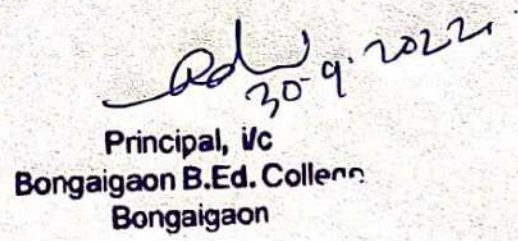 30-9-2022
Principal, i/c
Bongaigaon B.Ed. College
Bongaigaon